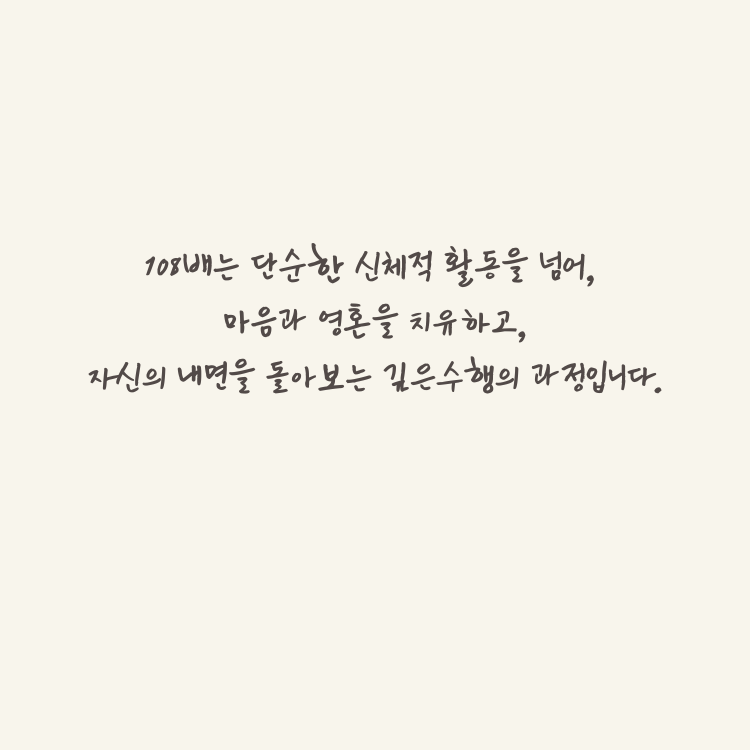 108배는 단순한 신체적 활동을 넘어,
마음과 영혼을 치유하고,
자신의 내면을 돌아보는 깊은수행의 과정입니다.